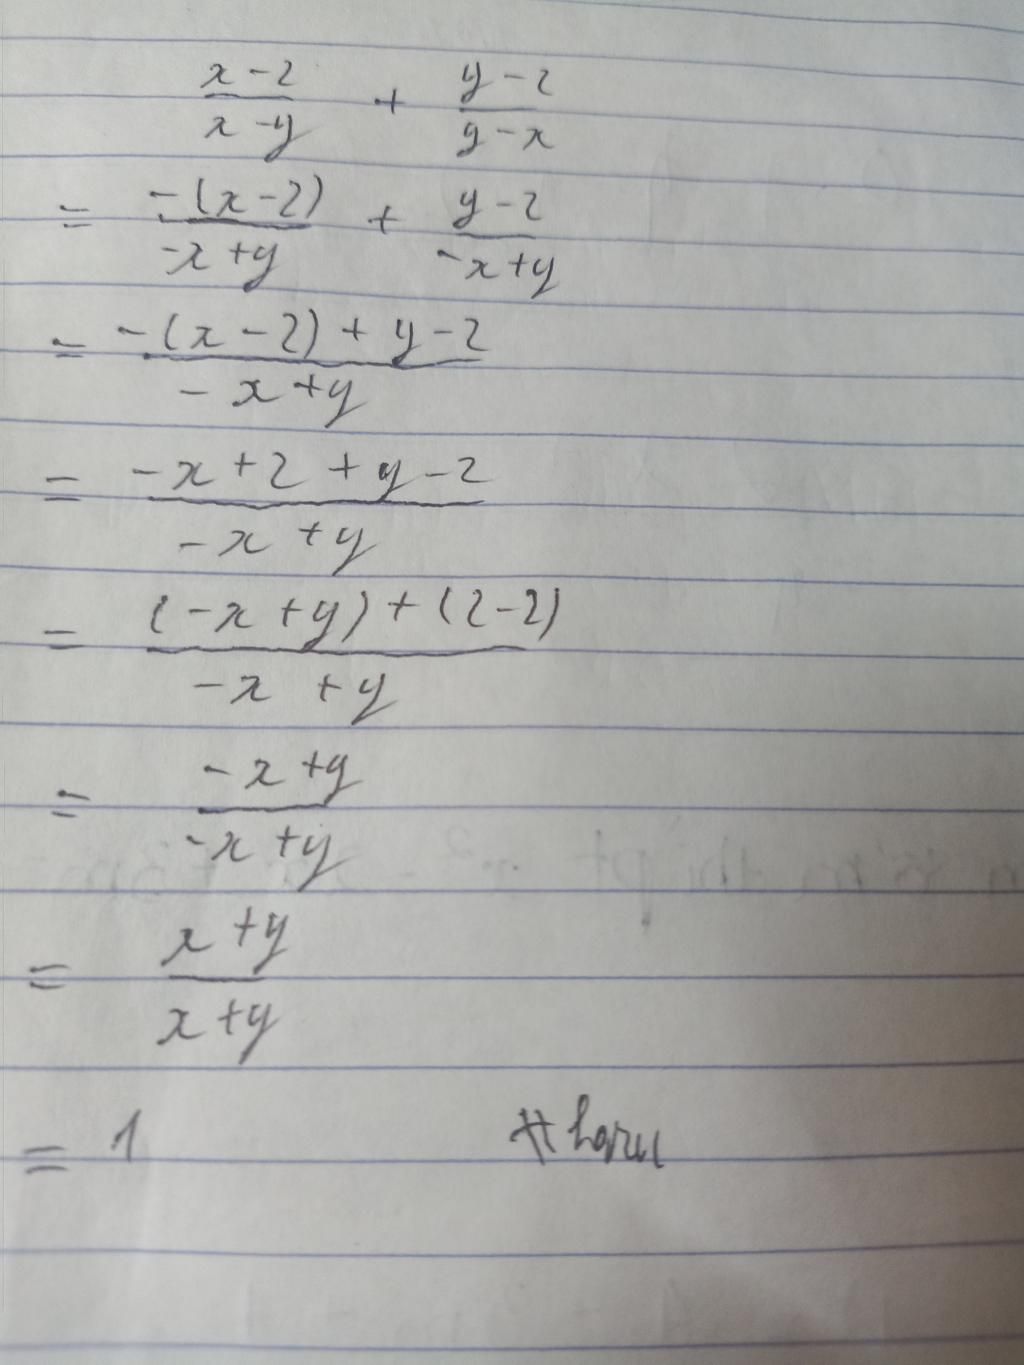 x - 2 / x - y + y - 2 / y - x
= -(x - 2) / -x + y + y - 2 / -x + y
= -(x - 2) + y - 2 / -x + y
= -x + 2 + y - 2 / -x + y
= (-x + y) + (2 - 2) / -x + y
= -x + y / -x + y
= x + y / x + y
= 1 #haru